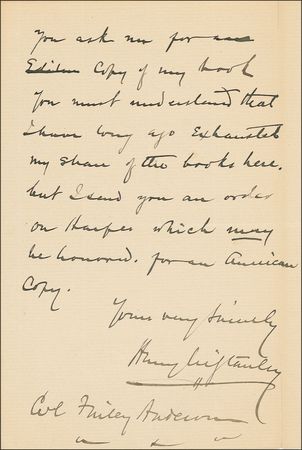 You ask me for an
Edition Copy of my book
You must understand that
I have long ago Exhausted
my share of the books here.
but I send you an order
on Harper which may
be honored. for an American
Copy.
Yours very Sincerely
Henry M Stanley
Col Finley Anderson